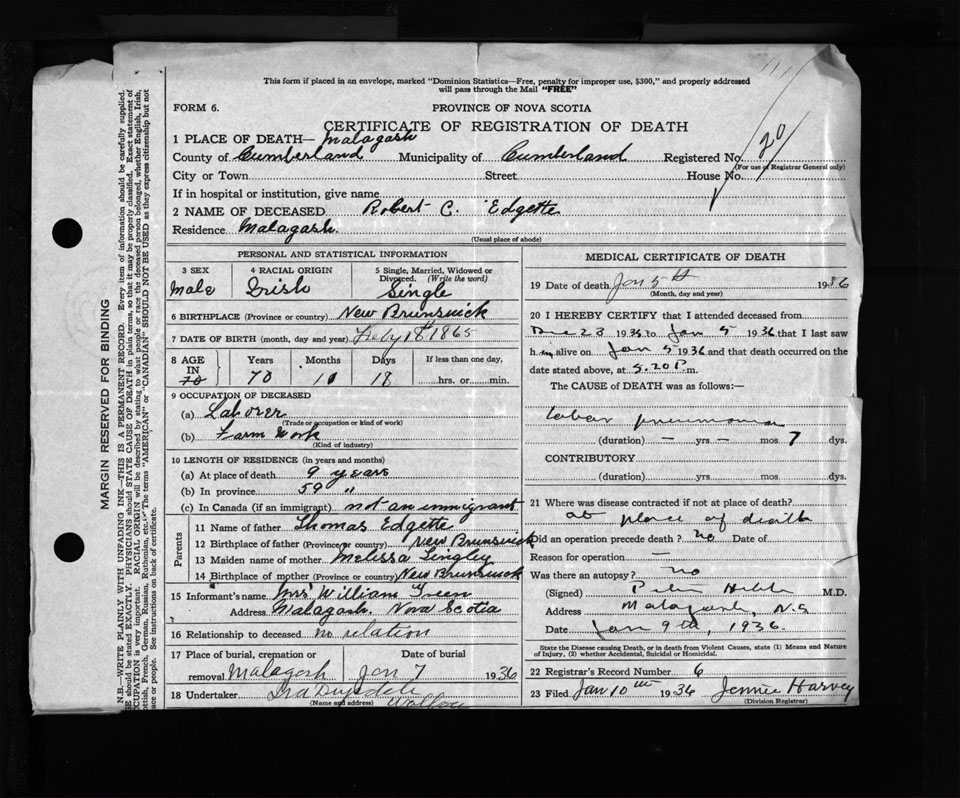 This form if placed in an envelope, marked "Dominion Statistics—Free, penalty for improper use, $300," and properly addressed
will pass through the Mail "FREE"
FORM 6.
PROVINCE OF NOVA SCOTIA
CERTIFICATE OF REGISTRATION OF DEATH
1 PLACE OF DEATH— Malagash
County of Cumberland Municipality of Cumberland Registered No. 20
(For use of Registrar General only)
City or Town Street House No.
If in hospital or institution, give name
2 NAME OF DECEASED Robert C. Edgette
Residence Malagash.
(Usual place of abode)
PERSONAL AND STATISTICAL INFORMATION
3 SEX 4 RACIAL ORIGIN 5 Single, Married, Widowed or
Divorced. (Write the word)
Male Irish Single
6 BIRTHPLACE (Province or country) New Brunswick
7 DATE OF BIRTH (month, day and year) Feby 18th 1865
8 AGE Years Months Days If less than one day,
IN
70 70 10 18 hrs. or min.
9 OCCUPATION OF DECEASED
(a) Laborer
(Trade or occupation or kind of work)
(b) Farm Work
(Kind of industry)
10 LENGTH OF RESIDENCE (in years and months)
(a) At place of death 9 years
(b) In province 59 "
(c) In Canada (if an immigrant) not an immigrant
Parents
11 Name of father Thomas Edgette
12 Birthplace of father (Province or country) New Brunswick
13 Maiden name of mother Melissa
14 Birthplace of mother (Province or country) New Brunswick
15 Informant's name Mrs William Treen
Address Malagash. Nova Scotia
16 Relationship to deceased no relation
17 Place of burial, cremation or Date of burial
removal Malagash Jan 7 1936
18 Undertaker
(Name and address)
MEDICAL CERTIFICATE OF DEATH
19 Date of death Jan 5th 1936
(Month, day and year)
20 I HEREBY CERTIFY that I attended deceased from
Dec 28 1935 to Jan 5 1936 that I last saw
him alive on Jan 5 1936 and that death occurred on the
date stated above, at 5.20 P.m.
The CAUSE of DEATH was as follows:—
lobar pneumonia
(duration) — yrs — mos 7 dys.
CONTRIBUTORY
(duration) yrs mos dys.
21 Where was disease contracted if not at place of death?
at place of death
Did an operation precede death ? no Date of
Reason for operation —
Was there an autopsy? no
(Signed) M.D.
Address Malagash, N.S
Date Jan 9th, 1936.
State the Disease causing Death, or in death from Violent Causes, state (1) Means and Nature
of Injury, (2) whether Accidental, Suicidal or Homicidal.
22 Registrar's Record Number 6
23 Filed Jan 10th 1936 Jennie Harvey
(Division Registrar)
MARGIN RESERVED FOR BINDING
N.B.—WRITE PLAINLY WITH UNFADING INK—THIS IS A PERMANENT RECORD. Every item of information should be carefully supplied.
should be stated EXACTLY. PHYSICIANS should STATE CAUSE OF DEATH in plain terms, so that it may be properly classified. Exact statement of
OCCUPATION is very important. RACIAL ORIGIN will be described by stating to what people or race the deceased person belonged, whether English, Irish,
Scottish, French, German, Russian, Ruthenian, etc. The terms "AMERICAN" or "CANADIAN" SHOULD NOT BE USED as they express citizenship but not
race or people. See instructions on back of certificate.